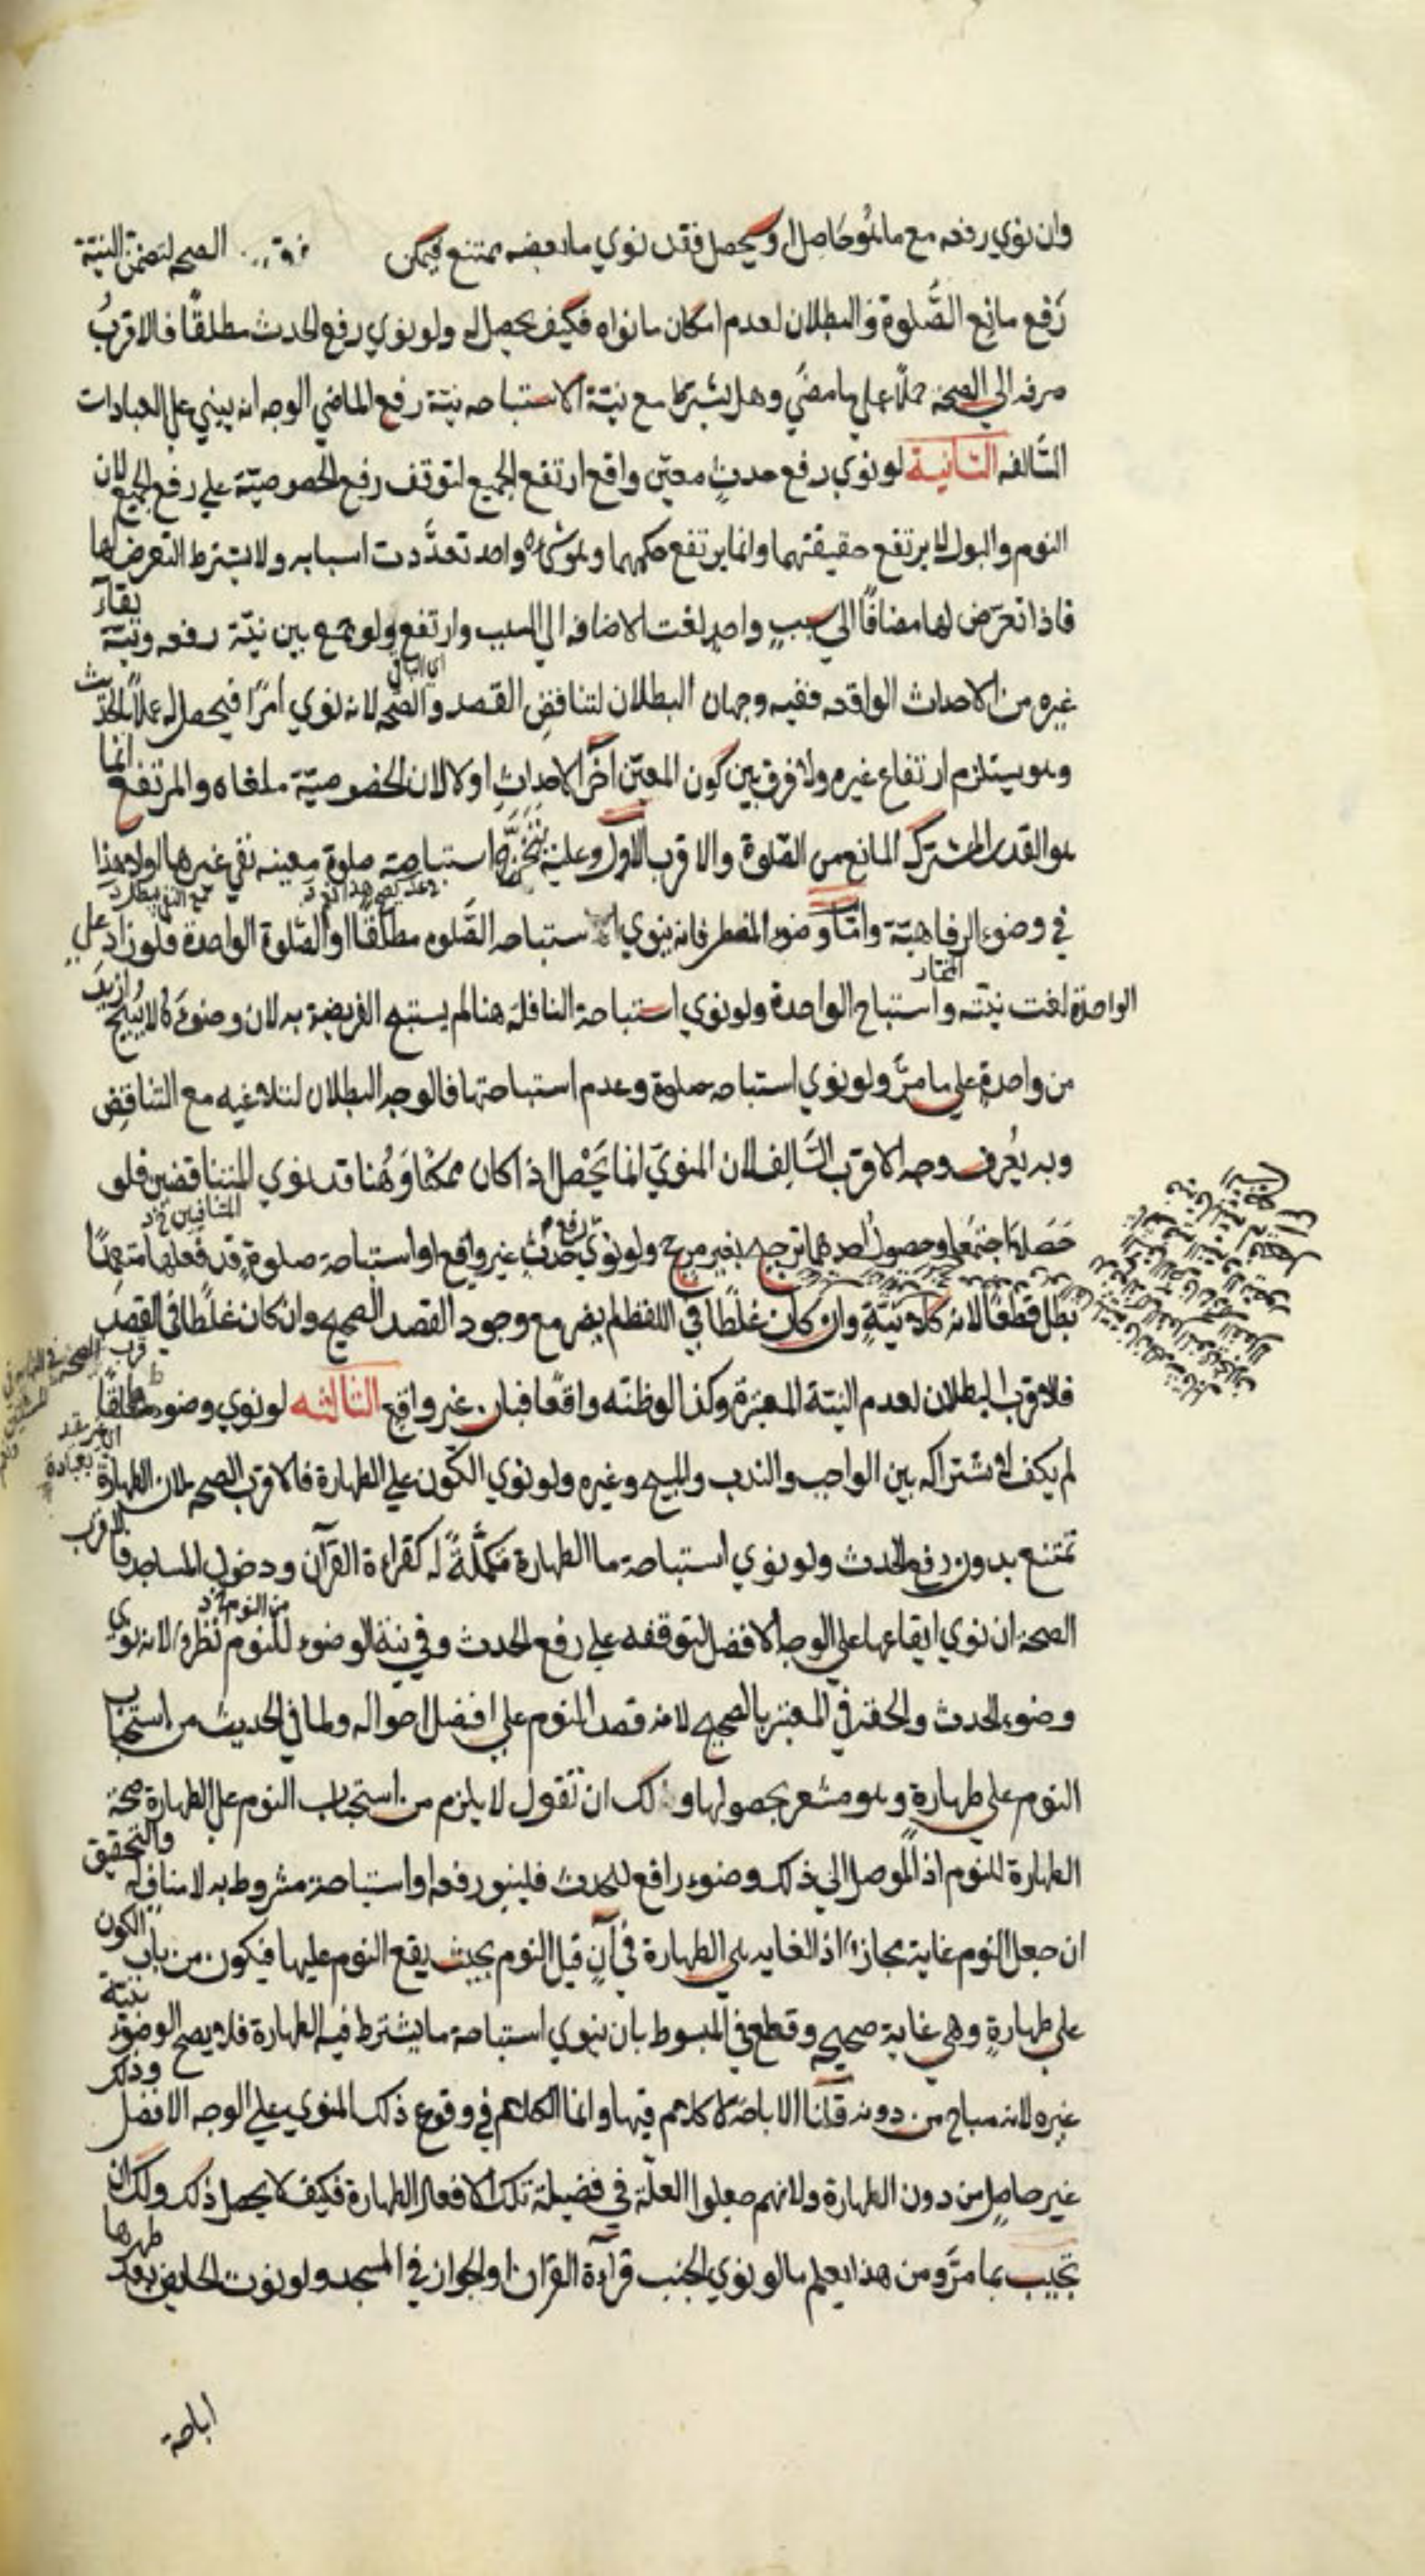 وان نوي رفعه مع ما هو حاصل او سيحصل فقد نوي ما بعضه ممتنع فيمكن الصحه لتضمن النيّة
رَفع مانع الصَّلوة والبطلان لعدم امكان ما نواه فكيف يحصل له ولو نوي رفع الحدث مطلقًا فالاقربُ
صرفه الي الصحة حملًا علي ما مضَي وهل يشترط مع نيّة الاستباحه نيّة رفع الماضي الوجه انه يبني علي العبادات
السَّالفه الثانية لو نوي رفع حدثٍ معيّن واقع ارتفع الجميع لتوقف رفع الخصوصيّة علي رفع الجميع لان
النوم والبول لا يرتفع حقيقتهما وانما يرتفع حكمهما وهو شيء واحد تعدَّدت اسبابه ولا يشترط التعرض لها
فاذا تعرّض لها مضافًا الي سببٍ واحدٍ لغت الاضافه الي السبب وارتفع ولو جمع بين نيّة رفعه ونيّة بقاء
غيره من الاحداث الواقعه ففيه وجهان البطلان لتناقضِ القصد والصحّه لانه نوي امرًا فيحصل له عملًا بالحديث
وهو يستلزم ارتفاع غيره ولا فرق بين كون المعيّن آخر الاحداثِ اولا لان الخصوصيّة ملغاه والمرتفع انما
هو القدر المشترك المانع من الصّلوة والاقرب الاوّل وعليه يتخرّج استباحة صلوة معينه نفي غيرها اولا هذا
في وضوء الرفاهيّة وامّا وضوء المضطر فانه ينوي استباحه الصَّلوه مطلقًا او الصّلوة الواحدة فلو زاد علي
الواحدة لغت نيّته واستباح الواحدة ولو نوي استباحة النافلة هنا لم يستبح الفريضة به لان وضوءَه لا يُبيح ازيدَ
من واحدةٍ علي ما مرَّ ولو نوي استباحه صلوة وعدم استباحتها فالوجه البطلان لتلاعبه مع التناقضِ
وبه يُعرف وجه الاقرب السَّالف لان المنويّ انما يَحْصل اذا كان ممكنًا وَهُنا قد نوي المتناقضين فلو
حَصَلا اجتمعا وحصول احدهما ترجيح بغير مرجح ولو نوي رفع حدثٍ غير واقع او استباحة صلوةٍ قد فعلها متعمدًا
بطل قطعًا لانه كلا نيّةٍ وان كان غلطًا في اللفظ لم يضر مع وجود القصد الصحيح وان كان غلطًا في القصد
فلاقرب البطلان لعدم النيّة المعتبرة وكذا لو ظنّه واقعًا فبان غير واقع الثالثه لو نوي وضوءا مطلقًا
لم يكف لاشتراكه بين الواجب والندب والمبيح وغيره ولو نوي الكون علي الطهارة فالاقرب الصحه لان الطهارة
تمتنع بدون رفع الحدث ولو نوي استباحة ما الطهارة مكمّلةً له كقراءة القرآن ودخول المساجد فالاقرب
الصحة ان نوي ايقاعها علي الوجه الافضل لتوقفه علي رفع الحدث وفي نيّة الوضوء للنوم نظرٌ لانه نوي
وضوء الحدث والحقه في المعتبر بالصحيح لانه قصد النوم علي افضل احواله ولما في الحديث من استحباب
النوم علي طهارةٍ وهو مشعر بحصولها ولك ان تقول لا يلزم من استحباب النوم علي الطهارة صحّة
الطهارة للنوم اذ الموصل الي ذلك وضوء رافع للحدث فلينو رفعه او استباحة مشروط به لا منافٍ له والتحقيق
ان جعل النوم غاية مجازٌ اذ الغايه هي الطهارة في آنٍ قبل النوم بحيث يقع النوم عليها فيكون من باب الكون
علي طهارةٍ وهي غاية صحيحه وقطع في المبسوط بان ينوي استباحة ما يشترط فيه الطهارة فلا يصح الوضوء بنيّة
غيره لانه مباح من دونه قلنا الاباحة لا كلام فيها وانما الكلام في وقوع ذلك المنوي علي الوجه الافضل وذلك
غير حاصلٍ من دون الطهارة ولانهم جعلوا العلّة في فضيلة تلك الافعال الطهارة فكيف لا يحصل ذلك ولك ان
تجيب بما مرَّ ومن هذا يعلم ما لو نوي الجنب قرآءة القران او الجواز في المسجد ولو نوت الحايض بعد طهرها
اباحة